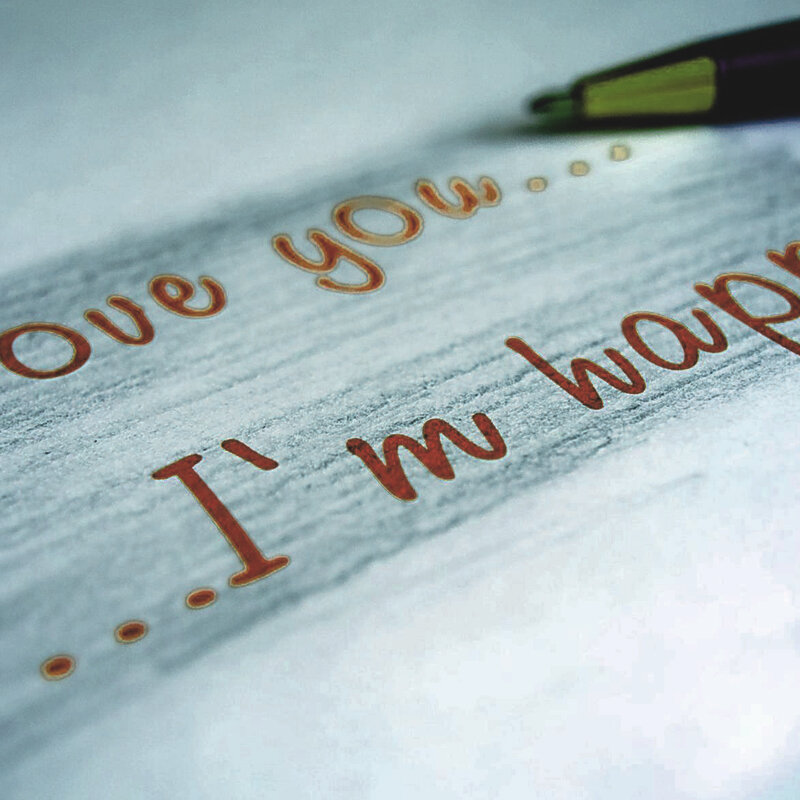 ove you...
...I'm happ